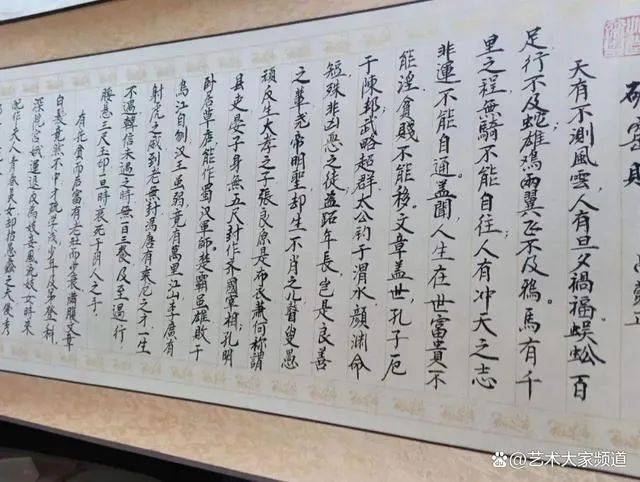 破窰賦
天有不測風雲，人有旦夕禍福。蜈蚣百
足行不及蛇雄鸡兩翼飞不及鴉。馬有千
里之程，無騎不能自往；人有冲天之志
非運不能自通。盖聞人生在世富貴不
能淫，貧賤不能移。文章盖世，孔子厄
于陳邦，武略超群太公钓于渭水。顔渊命
短殊非凶恶之徒盗跖年長岂是良善
之輩。尧帝明聖却生不肖之儿瞽叟愚
頑反生大孝之子張良原是布衣萧何称謂
县吏晏子身無五尺封作齐國宰相，孔明
卧居草庐能作蜀汉軍師。楚霸虽雄敗于
烏江自刎汉王虽弱竟有萬里江山李廣有
射虎之威到老無封馮唐有乘龙之才一生
不遇韓信未遇之時無一日三餐，及至遇行
腰悬三尺玉印一旦時衰死于阴人之手。
有先貧而后富有老壮而少衰满腹文章
白髮竟然不中才疏学浅少年及第登科
深院宫娥運退反為妓妾風流妓女時来
配作夫人青春美女却招愚蠢之夫俊秀
艺术大家频道